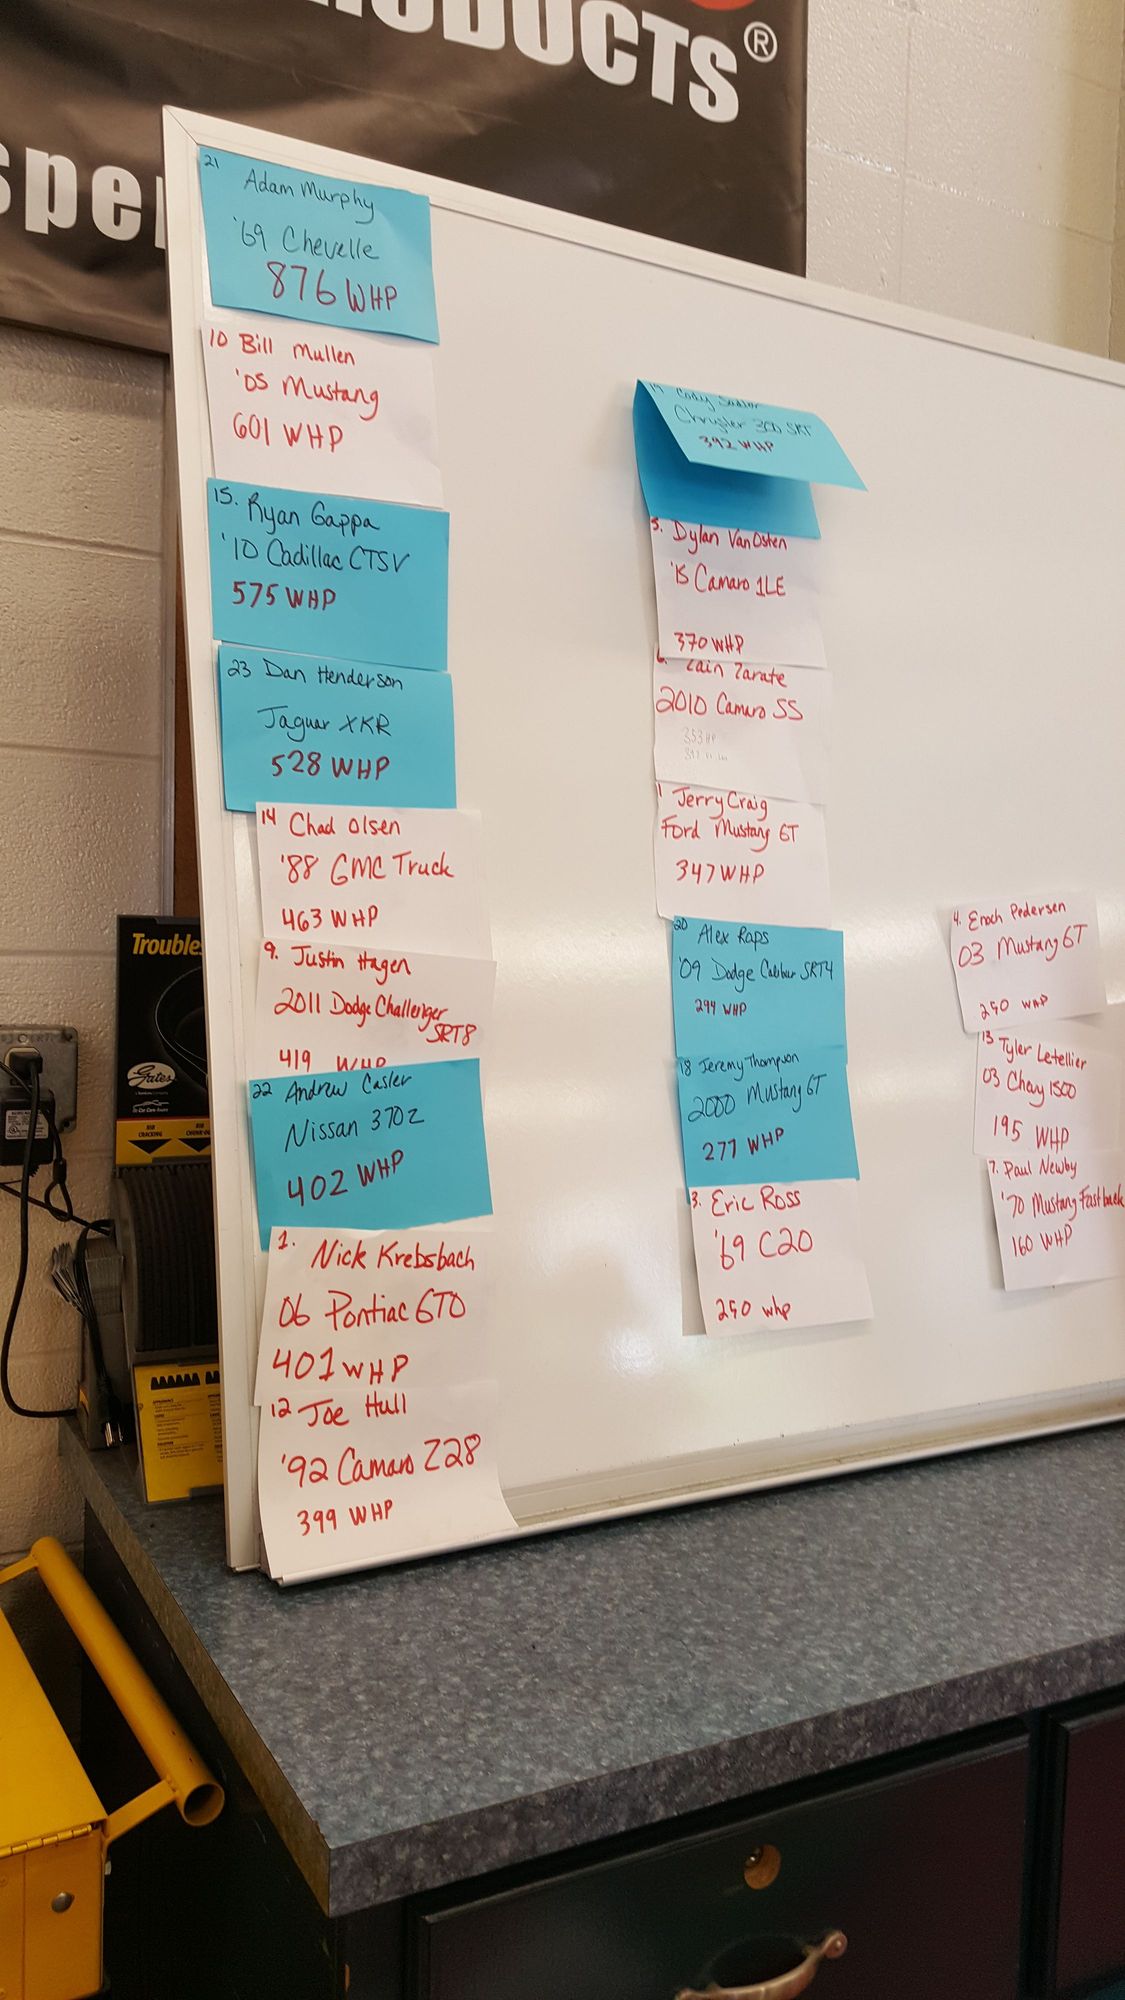 PRODUCTS®
21
Adam Murphy
'69 Chevelle
876 WHP
10 Bill Mullen
'05 Mustang
601 WHP
15. Ryan Gappa
'10 Cadillac CTSV
575 WHP
23 Dan Henderson
Jaguar XKR
528 WHP
14 Chad Olsen
'88 GMC Truck
463 WHP
9. Justin Hagen
2011 Dodge Challenger
SRT8
419 WHP
22 Andrew Casler
Nissan 370z
402 WHP
1. Nick Krebsbach
06 Pontiac GTO
401 WHP
12 Joe Hull
'92 Camaro Z28
399 WHP
Cody
Chrysler 300 SRT
392 WHP
5. Dylan VanOsten
'15 Camaro 1LE
370 WHP
6. Zain Zarate
2010 Camaro SS
353 HP
Jerry Craig
Ford Mustang GT
347 WHP
20 Alex Raps
'09 Dodge Caliber SRT4
294 WHP
18 Jeremy Thompson
2000 Mustang GT
277 WHP
3. Eric Ross
'69 C20
250 whp
4. Enoch Pedersen
03 Mustang GT
250 WHP
13 Tyler Letellier
03 Chevy 1500
195 WHP
7. Paul Newby
'70 Mustang Fastback
160 WHP
Gates